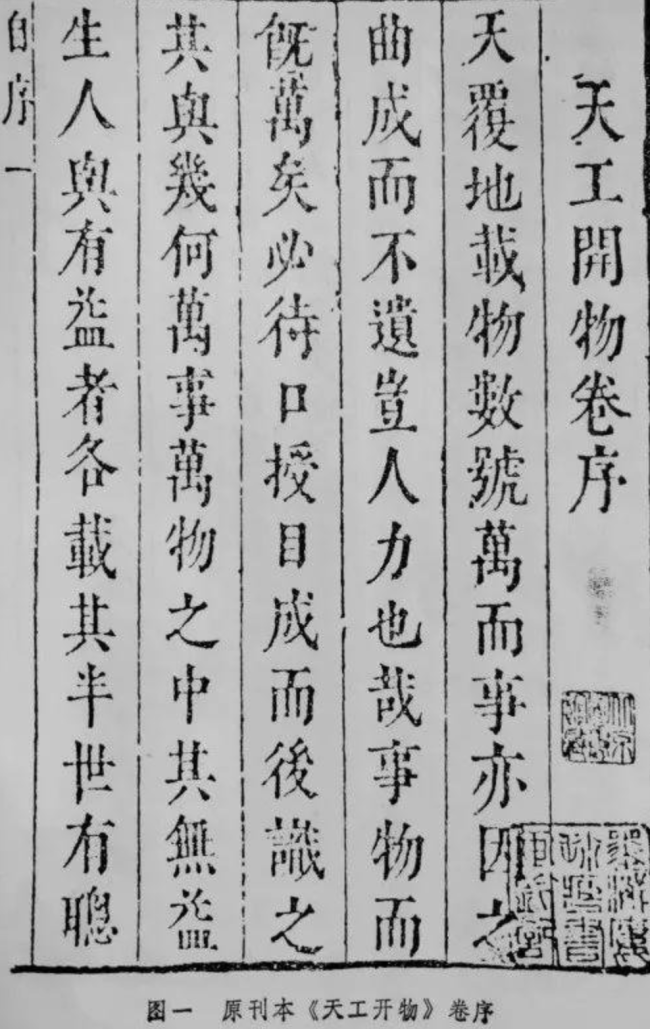 天工開物卷序
天覆地載物數號萬而事亦因之
曲成而不遺豈人力也哉事物而
旣萬矣必待口授目成而後識之
其與幾何萬事萬物之中其無益
生人與有益者各載其半世有聰
自序 一
图一 原刊本《天工开物》卷序